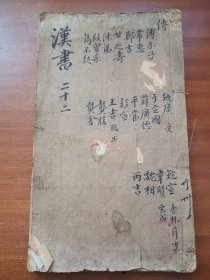 傳
傅介子
常惠
鄭吉
甘延壽
陳湯
段會宗
雋不疑
疏廣 受
于定國
薛廣德
平當
彭宣
王吉 駿
龔勝
龔舍
鮑宣
韋賢 玄成
魏相
丙吉
漢書
二十二